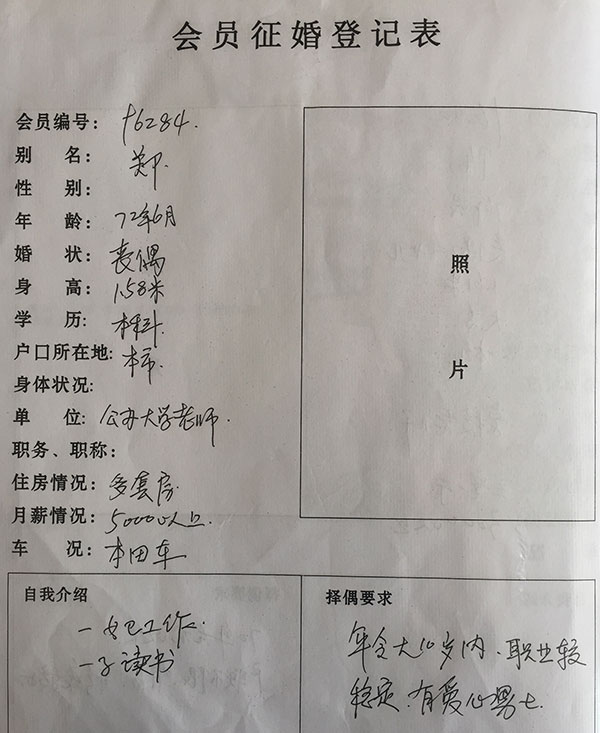 会员征婚登记表
会员编号: 16284.
别 名: 郑.
性 别:
年 龄: 72年6月
婚 状: 丧偶
身 高: 1.58米
学 历: 本科.
户口所在地: 本市.
身体状况:
单 位: 公办大学老师.
职务、职称:
住房情况: 多套房.
月薪情况: 5000以上
车 况: 本田车
照
片
自我介绍
一女已工作.
一子读书
择偶要求
年令大10岁内、职业较
稳定、有爱心男士.